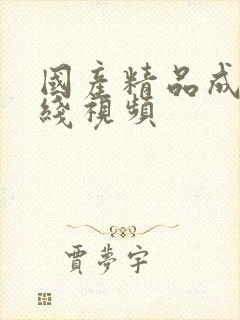 國產精品成
綫視頻
賈夢宇